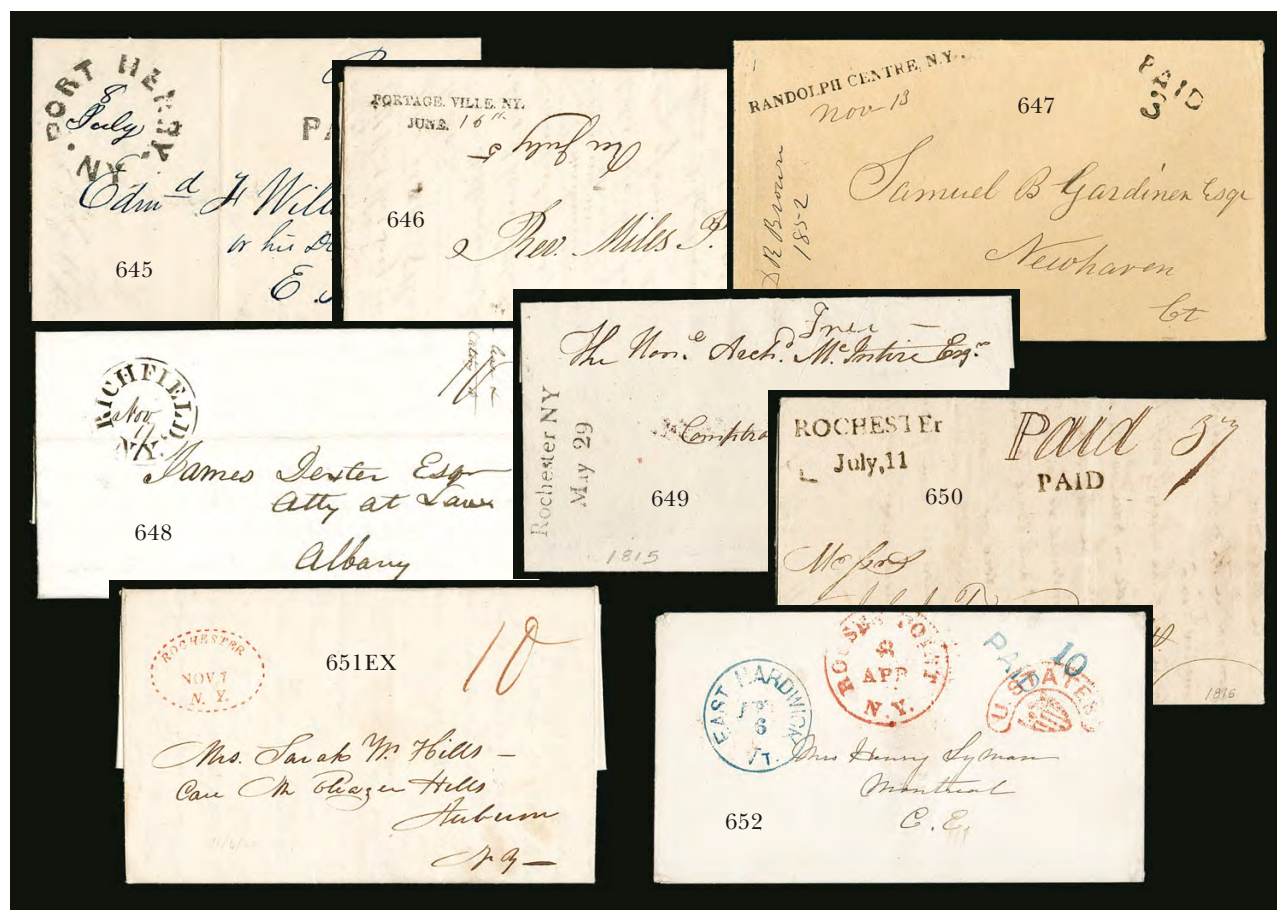 PORT HENRY. N.Y.
8
July
PA
Edmd H Will
or his
E.
645
PORTAGE. VILLE. NY.
JUNE. 16th
July 5
646
Rev. Miles P.
RANDOLPH CENTRE, N.Y.
Nov 13
PAID
3
647
Samuel B Gardiner Esqr
Newhaven
Ct
D R Brown
1852
RICHFIELD, N.Y.
Nov
James Dexter Esqr
Atty at Law
648
Albany
Free
The Honl. Archd. McIntire Esqr.
Comptro
Rochester NY
May 29
649
1815
ROCHESTEr
July, 11
Paid 37
PAID
650
Messrs
1816
ROCHESTER
NOV 7
N. Y.
651EX
10
Mrs. Sarah W. Hills
Care Eleazer Hills
Auburn
N Y
EAST HARDWICK
6
VT.
ROUSES POINT
8
APR
N.Y.
PAID 10
U. STATES
Mrs Henry Lyman
Montreal
C. E.
652